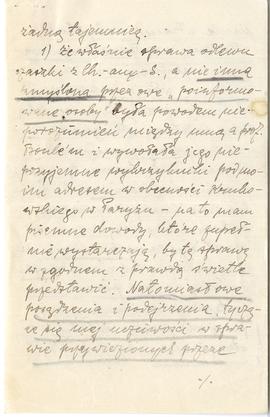 żadną tajemnicą.
1) że właśnie sprawa odlewu
czaszki z Ch.-aux-S., a nie inna
zmyślona przez owe „poinformo-
wane osoby” była powodem nie-
porozumień między mną a prof.
i wywołała jego nie-
przyjemne wykrzykniki pod mo-
im adresem w obecności Kruko-
wskiego w Paryżu - na to mam
piśmienne dowody, które zupeł-
nie wystarczają, by tę sprawę
w zgodnem z prawdą świetle
przedstawić. Natomiastowe
posądzenia i podejrzenia, tyczą-
ce się mej uczciwości w spra-
wie przywiezionych przeze
./.